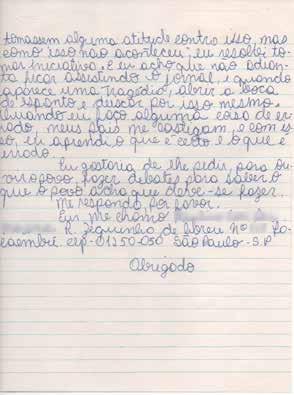 tomassem alguma atitude contra isso, mas
como isso não aconteceu, eu resolvi to-
mar iniciativa. E eu acho que não adian-
ta ficar assistindo o jornal, e quando
aparece uma tragédia, abrir a boca
de espanto e deixar por isso mesmo.
Quando eu faço alguma coisa de er-
rado, meus pais me castigam, e com is-
so, eu aprendi o que é certo e o que é
errado.
Eu gostaria de lhe pedir para ou-
vir o povo, fazer debates para saber o
que o povo acha que deve-se fazer.
Me responda, por favor.
Eu, me chamo
R. Zequinha de Abreu nº Pa-
caembú. cep-01250-050 São Paulo-S.P
Obrigado